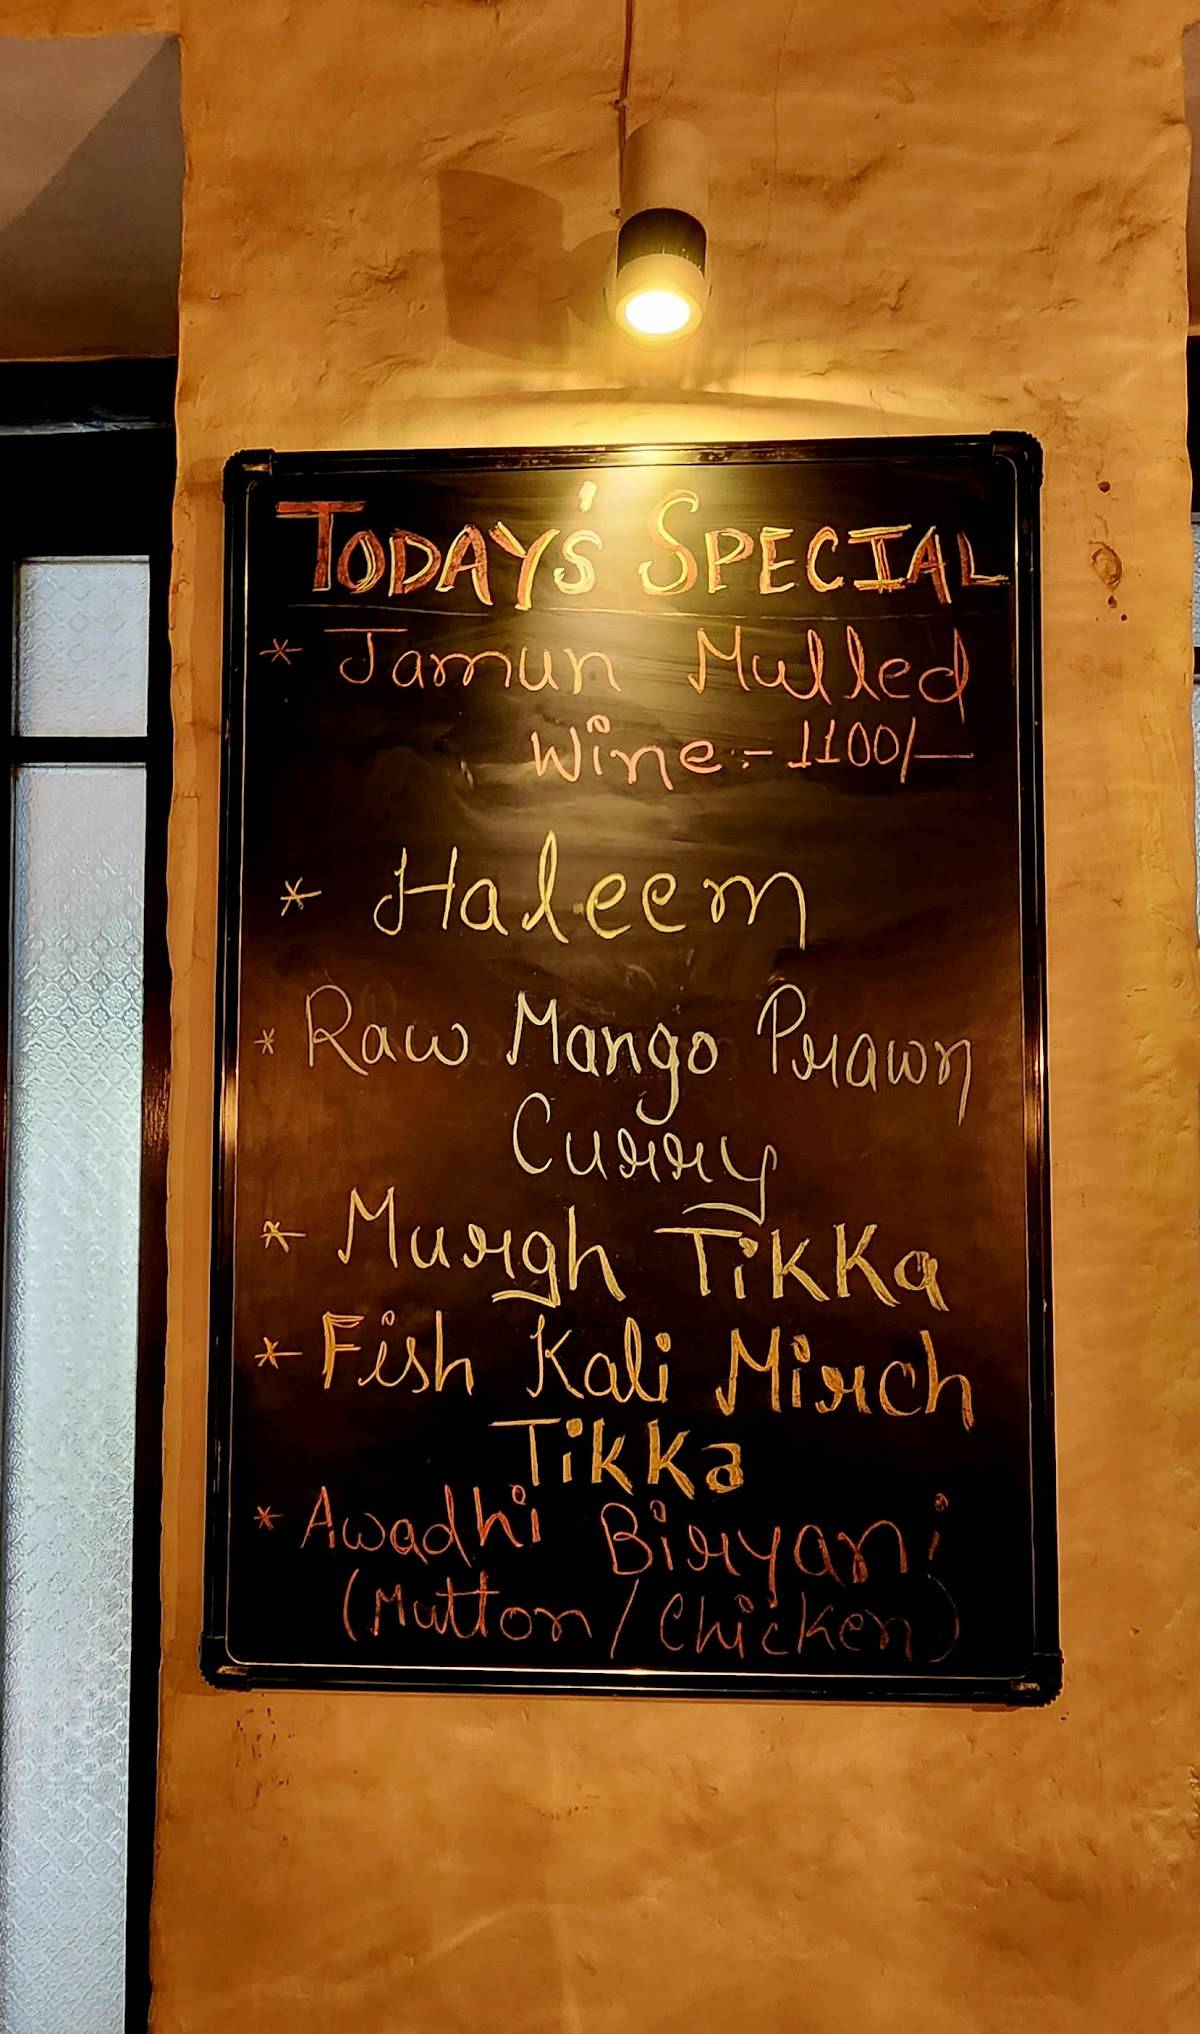 TODAY'S SPECIAL
* Jamun Mulled
Wine:- 1100/-
* Haleem
* Raw Mango Prawn
Curry
* Murgh Tikka
* Fish Kali Mirch
Tikka
* Awadhi Biryani
(Mutton / Chicken)